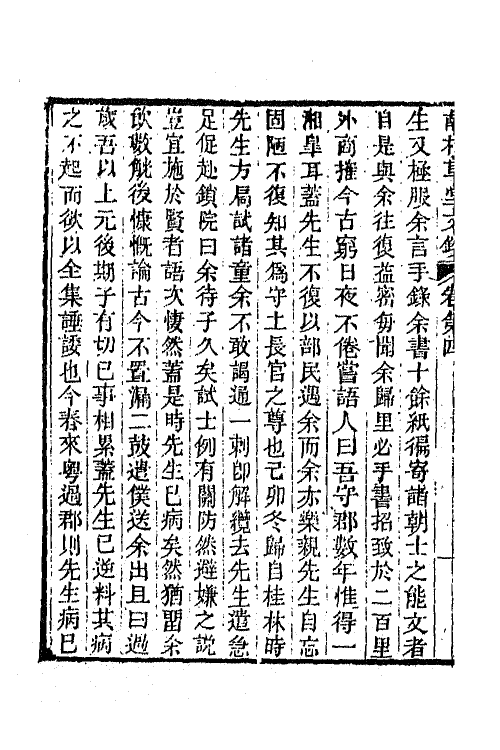 草堂文錄 卷第四
生又極服余言手錄余書十餘紙徧寄諸朝士之能文者
自是與余往復益密每聞余歸里必手書招致於二百里
外商搉今古窮日夜不倦嘗語人曰吾守郡數年惟得一
湘臯耳蓋先生不復以部民遇余而余亦樂親先生自忘
固陋不復知其爲守土長官之尊也己卯冬歸自桂林時
先生方局試諸童余不敢謁通一刺卽解纜去先生遣急
足促赴鎖院曰余待子久矣試士例有關防然避嫌之說
豈宜施於賢者語次悽然蓋是時先生已病矣然猶留余
飲數觥後慷慨論古今不置漏二鼓遣僕送余出且曰過
歲吾以上元後期子有切己事相累蓋先生已逆料其病
之不起而欲以全集諈諉也今春來粵過郡則先生病已